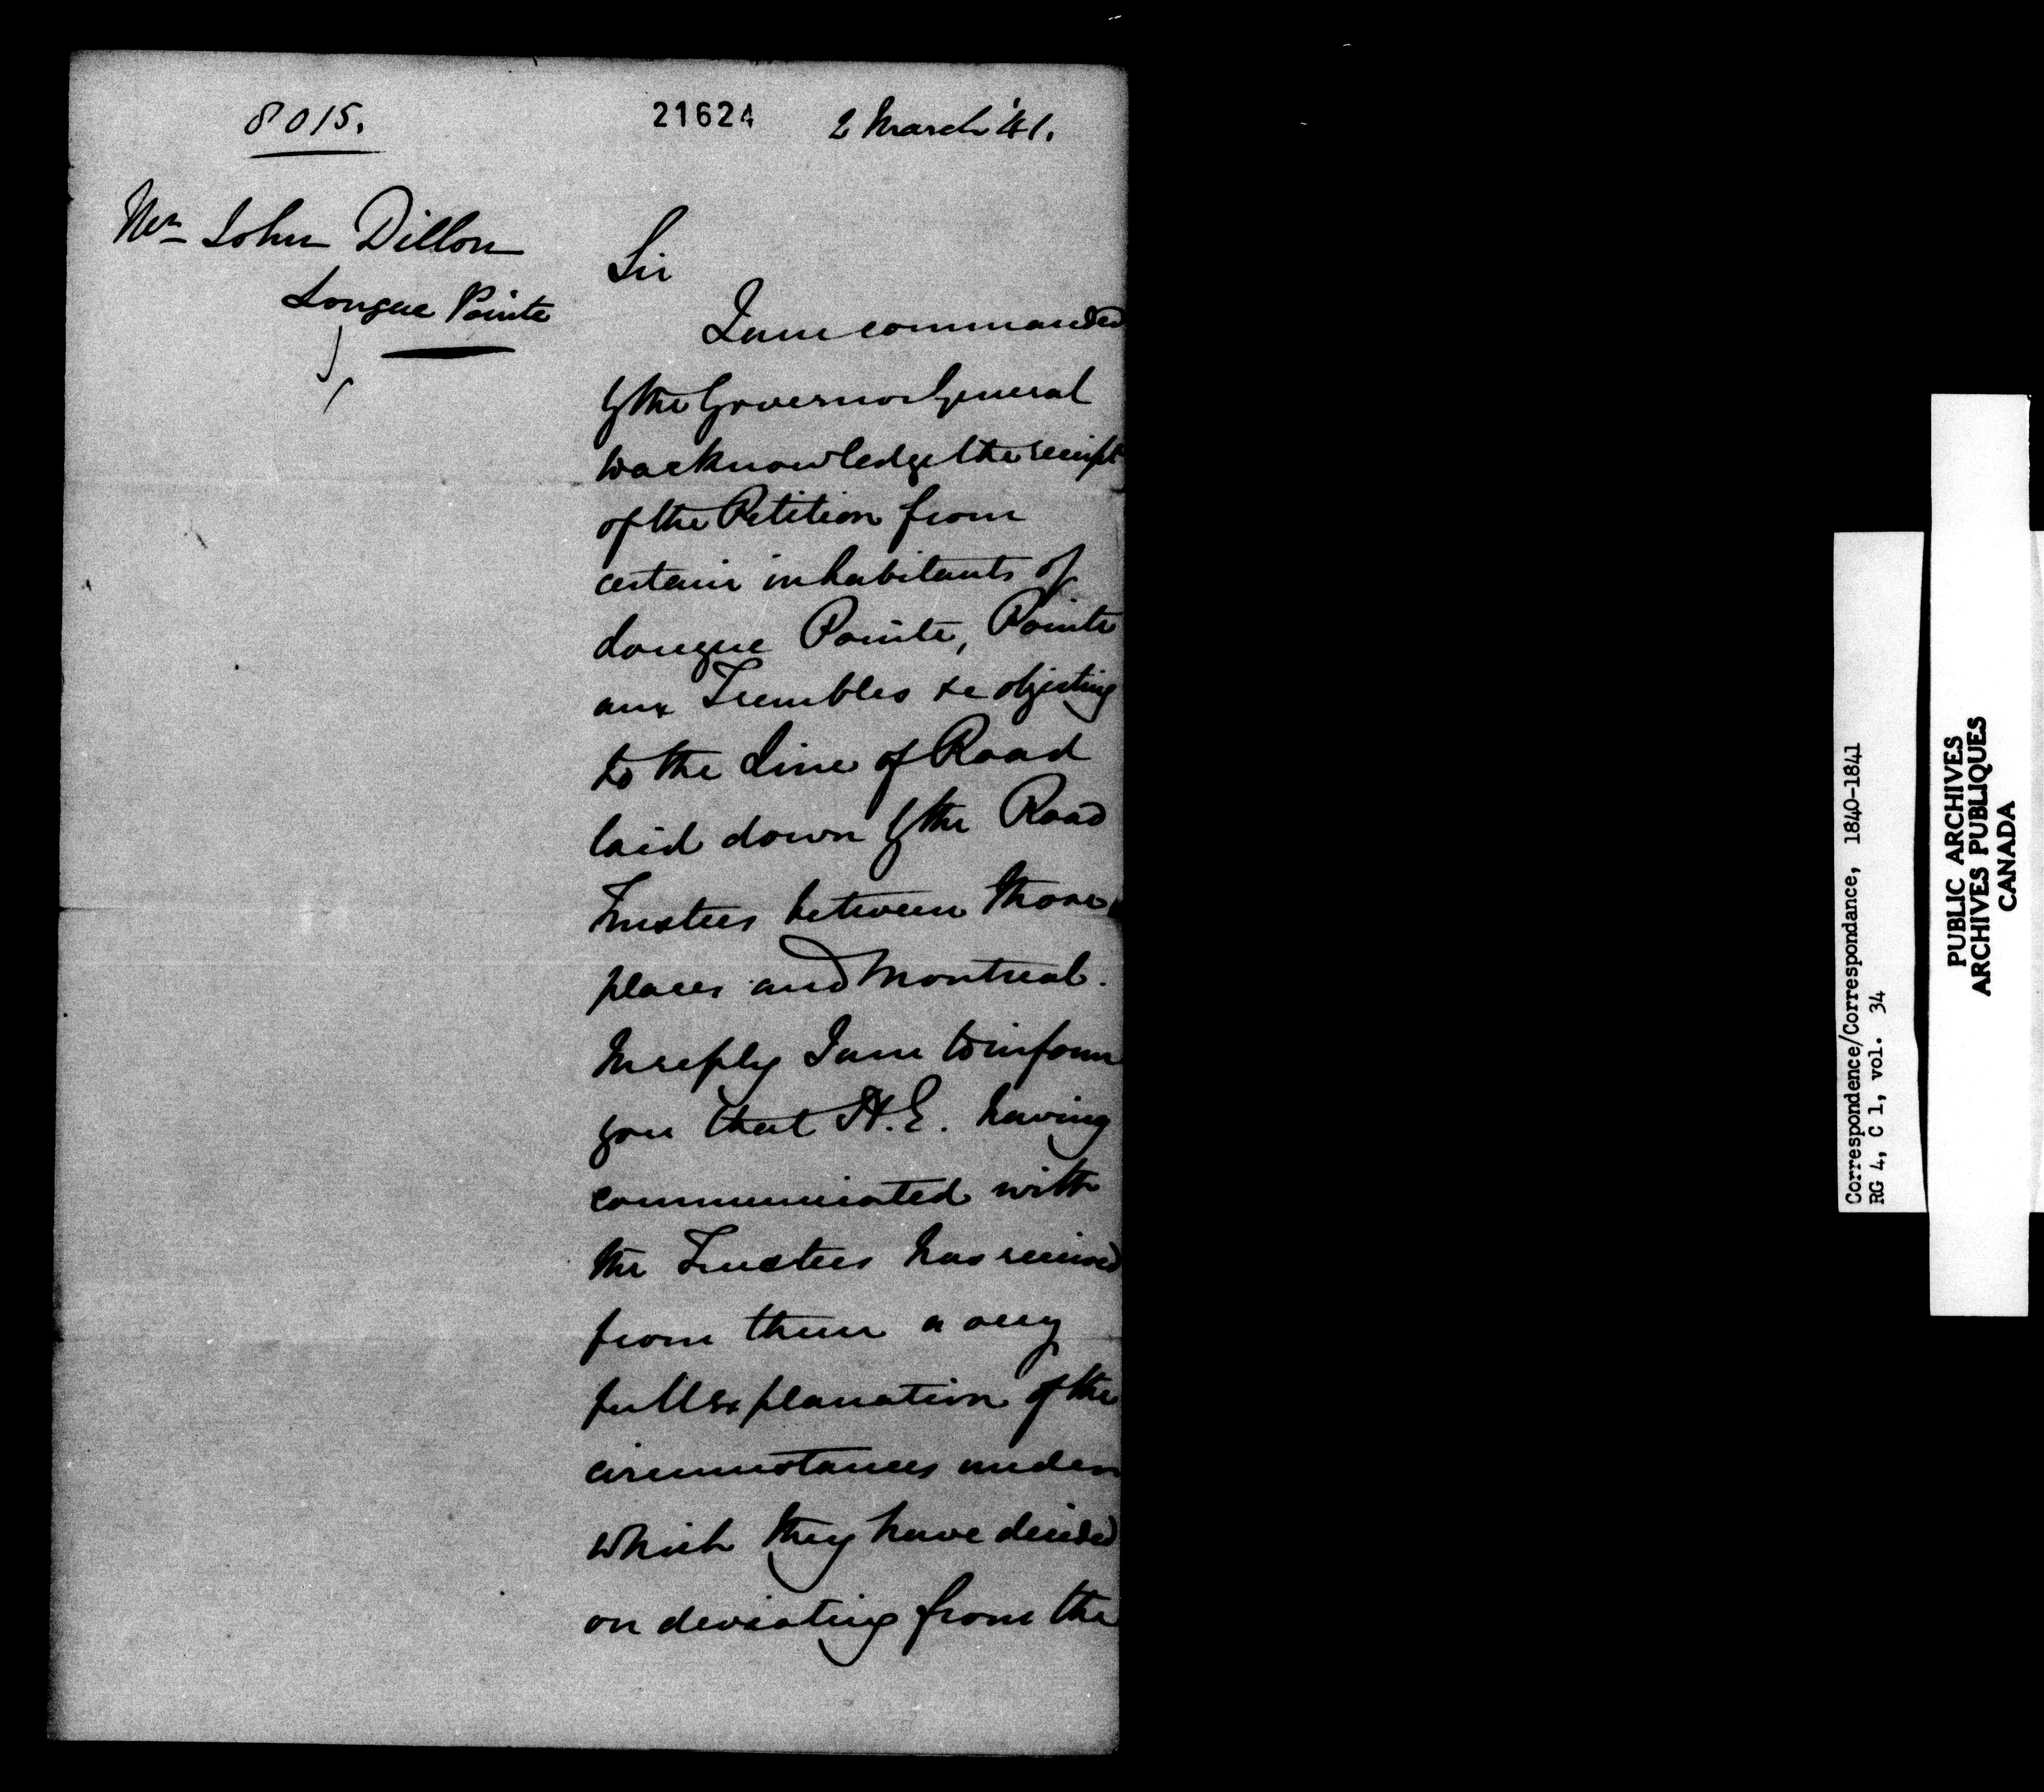 8015.
21624
2 March '41.
Mr. John Dillon
Longue Pointe
Sir
I am commanded
by the Governor General
to acknowledge the receipt
of the Petition from
certain inhabitants of
Longue Pointe, Pointe
aux Trembles &c objecting
to the Line of Road
laid down by the Road
Trustees between those
places and Montreal.
In reply I am to inform
you that H.E. having
communicated with
the Trustees has received
from them a very
full explanation of the
circumstances under
which they have decided
on deviating from the
Correspondence/Correspondance, 1840-1841
RG 4, C 1, vol. 34
PUBLIC ARCHIVES
ARCHIVES PUBLIQUES
CANADA